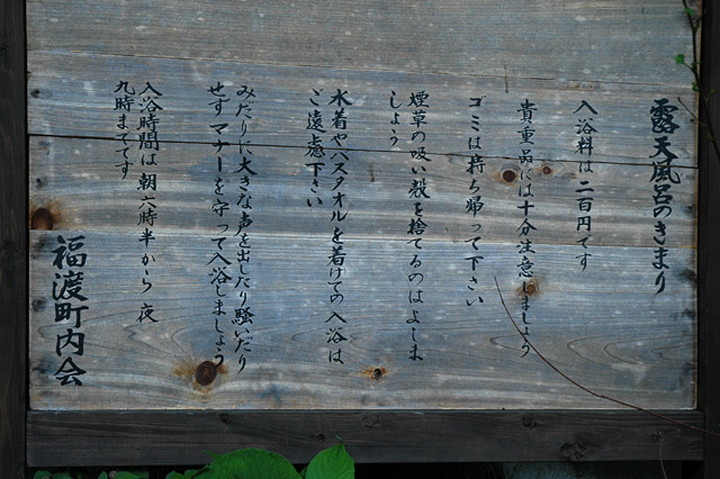 露天風呂のきまり
入浴料は二百円です
貴重品には十分注意しましょう
ゴミは持ち帰って下さい
煙草の吸い殻を捨てるのはよしま
しょう
水着やバスタオルを着けての入浴は
ご遠慮下さい
みだりに大きな声を出したり騒いだり
せずマナーを守って入浴しましょう
入浴時間は朝六時半から夜
九時までです
福渡町内会